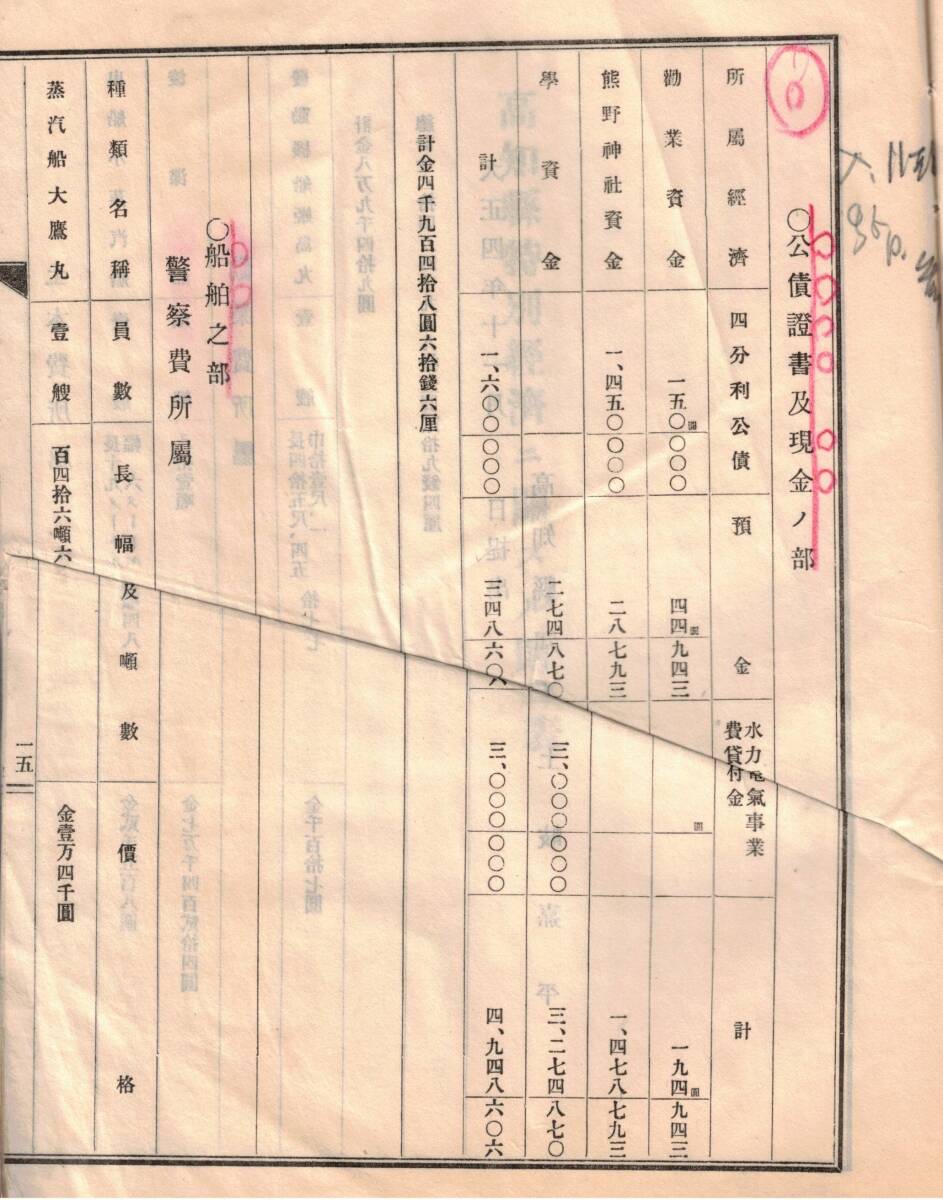 〇公債證書及現金ノ部
所屬經濟 四分利公債 預金 水力電氣事業費貸付金 計
勸業資金 一五〇圓〇〇〇 四四圓九四三 圓 一九四圓九四三
熊野神社資金 一、四五〇〇〇〇 二八七九三 一、四七八七九三
學資金 二七四八七〇 三、〇〇〇〇〇〇 三、二七四八七〇
計 一、六〇〇〇〇〇 三四八六〇六 三、〇〇〇〇〇〇 四、九四八六〇六
總計金四千九百四拾八圓六拾錢六厘
〇船舶之部
警察費所屬
種類名稱 員數 長幅及噸數 價格
蒸汽船大鷹丸 壹艘 百四拾六噸六 金壹万四千圓
一五